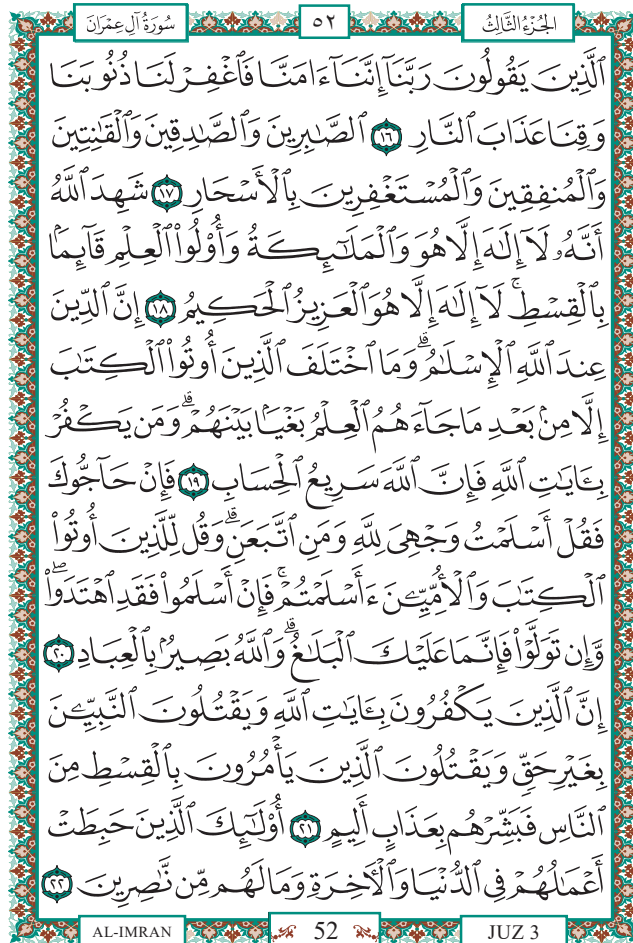 الجُزْءُ الثَّالِثُ
٥٢
سُورَةُ آلِ عِمْرَانَ
ٱلَّذِينَ يَقُولُونَ رَبَّنَآ إِنَّنَآ ءَامَنَّا فَٱغْفِرْ لَنَا ذُنُوبَنَا
وَقِنَا عَذَابَ ٱلنَّارِ ١٦ ٱلصَّٰبِرِينَ وَٱلصَّٰدِقِينَ وَٱلْقَٰنِتِينَ
وَٱلْمُنفِقِينَ وَٱلْمُسْتَغْفِرِينَ بِٱلْأَسْحَارِ ١٧ شَهِدَ ٱللَّهُ
أَنَّهُۥ لَآ إِلَٰهَ إِلَّا هُوَ وَٱلْمَلَٰٓئِكَةُ وَأُو۟لُوا۟ ٱلْعِلْمِ قَآئِمًۢا
بِٱلْقِسْطِۚ لَآ إِلَٰهَ إِلَّا هُوَ ٱلْعَزِيزُ ٱلْحَكِيمُ ١٨ إِنَّ ٱلدِّينَ
عِندَ ٱللَّهِ ٱلْإِسْلَٰمُۗ وَمَا ٱخْتَلَفَ ٱلَّذِينَ أُوتُوا۟ ٱلْكِتَٰبَ
إِلَّا مِنۢ بَعْدِ مَا جَآءَهُمُ ٱلْعِلْمُ بَغْيًۢا بَيْنَهُمْۗ وَمَن يَكْفُرْ
بِـَٔايَٰتِ ٱللَّهِ فَإِنَّ ٱللَّهَ سَرِيعُ ٱلْحِسَابِ ١٩ فَإِنْ حَآجُّوكَ
فَقُلْ أَسْلَمْتُ وَجْهِىَ لِلَّهِ وَمَنِ ٱتَّبَعَنِۗ وَقُل لِّلَّذِينَ أُوتُوا۟
ٱلْكِتَٰبَ وَٱلْأُمِّيِّـۧنَ ءَأَسْلَمْتُمْۚ فَإِنْ أَسْلَمُوا۟ فَقَدِ ٱهْتَدَوا۟ۖ
وَّإِن تَوَلَّوْا۟ فَإِنَّمَا عَلَيْكَ ٱلْبَلَٰغُۗ وَٱللَّهُ بَصِيرٌۢ بِٱلْعِبَادِ ٢٠
إِنَّ ٱلَّذِينَ يَكْفُرُونَ بِـَٔايَٰتِ ٱللَّهِ وَيَقْتُلُونَ ٱلنَّبِيِّـۧنَ
بِغَيْرِ حَقٍّ وَيَقْتُلُونَ ٱلَّذِينَ يَأْمُرُونَ بِٱلْقِسْطِ مِنَ
ٱلنَّاسِ فَبَشِّرْهُم بِعَذَابٍ أَلِيمٍ ٢١ أُو۟لَٰٓئِكَ ٱلَّذِينَ حَبِطَتْ
أَعْمَٰلُهُمْ فِى ٱلدُّنْيَا وَٱلْءَاخِرَةِ وَمَا لَهُم مِّن نَّٰصِرِينَ ٢٢
AL-IMRAN
52
JUZ 3